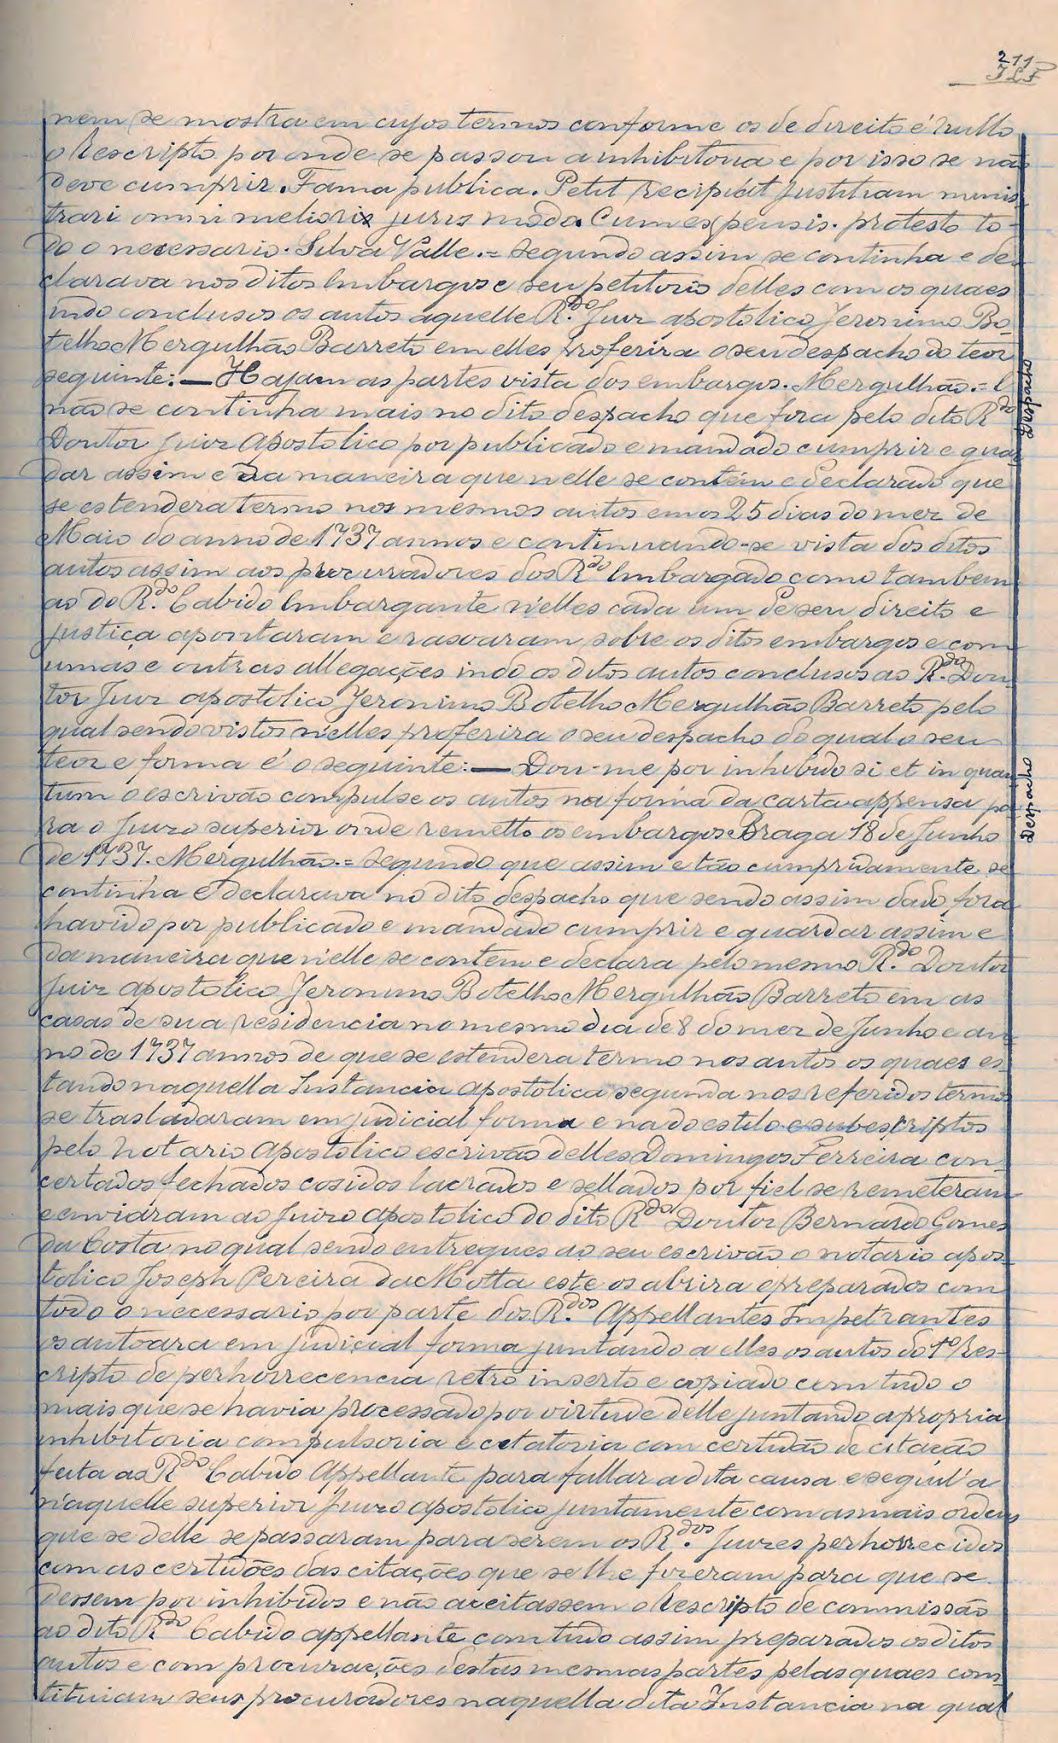 211
nem se mostra em cujos termos conforme os de direito é nullo
o Rescripto por onde se passou a inhibitoria e por isso se não
deve cumprir. Fama publica. Petit recipi et justitiam minis
trari omni meliori juris modo. Cum expensis. protesto to-
do o necessario. Silva Valle.= Segundo assim se continha e de-
clarava nos ditos Embargos e seu petitorio delles com os quaes
indo conclusos os autos aquelle R.do Juiz apostolico Jeronimo Bo-
telho Mergulhão Barreto em elles proferira o seu despacho do teor
seguinte:— Hajam as partes vista dos embargos. Mergulhão.= E
não se continha mais no dito despacho que fora pelo dito R.do
Doutor Juiz Apostolico por publicado e mandado cumprir e guar
dar assim e da maneira que nelle se contém e declarado que
se estendera termo nos mesmos autos em os 25 dias do mez de
Maio do anno de 1737 annos e continuando-se vista dos ditos
autos assim aos procuradores dos R.do Embargado como tambem
ao do R.do Cabido Embargante n'elles cada um de seu direito e
justiça apontaram e rasoaram sobre os ditos embargos e com
umas e outras allegações indo os ditos autos conclusos ao R.do Dou
tor Juiz apostolico Jeronimo Botelho Mergulhão Barreto pelo
qual sendo vistos n'elles proferira o seu despacho do qual o seu
teor e forma é o seguinte:— Dou-me por inhibido si et in quan
tum o escrivão compulse os autos na forma da carta appensa pa
ra o Juizo superior onde remetto os embargos Braga 18 de Junho
de 1737. Mergulhão.= Segundo que assim e tão cumpridamente se
continha e declarava no dito despacho que sendo assim dado fora
havido por publicado e mandado cumprir e guardar assim e
da maneira que n'elle se contém e declara pelo mesmo R.do Doutor
Juiz apostolico Jeronimo Botelho Mergulhão Barreto em as
casas de sua residencia no mesmo dia de 8 do mez de Junho e an
no de 1737 annos de que se estendera termo nos autos os quaes es
tando naquella Instancia apostolica segunda nos referidos termos
se trasladaram em judicial forma e na do estilo e subescriptos
pelo notario Apostolico escrivão delles Domingos Ferreira con-
certados fechados cosidos lacrados e sellados por fiel se remeteram
e enviaram ao Juizo Apostolico do dito R.do Doutor Bernardo Gomes
da Costa no qual sendo entregues ao seu escrivão o notario apos-
tolico Joseph Pereira da Motta este os abrira e preparados com
todo o necessario por parte dos R.dos Appellantes Impetrantes
os autoara em judicial forma juntando a elles os autos do 1º Res-
cripto de perhorrecencia retro inserto e copiado com tudo o
mais que se havia processado por virtude delle juntando a propria
inhibitoria compulsoria e citatoria com certidão de citação
feita ao R.do Cabido Appellante para fallar a dita causa e seguil'a
n'aquelle superior Juizo apostolico juntamente com as mais ordens
que se delle se passaram para serem os R.dos Juizes perhorrecidos
com as certidões das citações que se lhe fizeram para que se
dessem por inhibidos e não aceitassem o Rescripto de commissão
ao dito R.do Cabido appellante com tudo assim preparados os ditos
autos e com procurações destas mesmas partes pelas quaes cons
tituiam seus procuradores naquella dita Instancia na qual
Despacho
Despacho